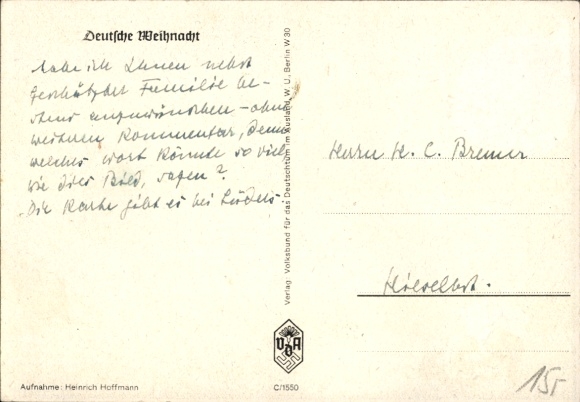 Deutsche Weihnacht
habe ich Ihnen nebst
geschätzter Familie be-
stens anzuwünschen – ohne
weiteren Kommentar, denn
welches Wort könnte so viel
wie dies Bild, sagen?
Die Karte gibt es bei Lüders
Herrn H. C. Bremer
Hierselbst.
Verlag Volksbund für das Deutschtum im Ausland, W. U., Berlin W 30
VDA
Aufnahme: Heinrich Hoffmann
C/1550
15,-